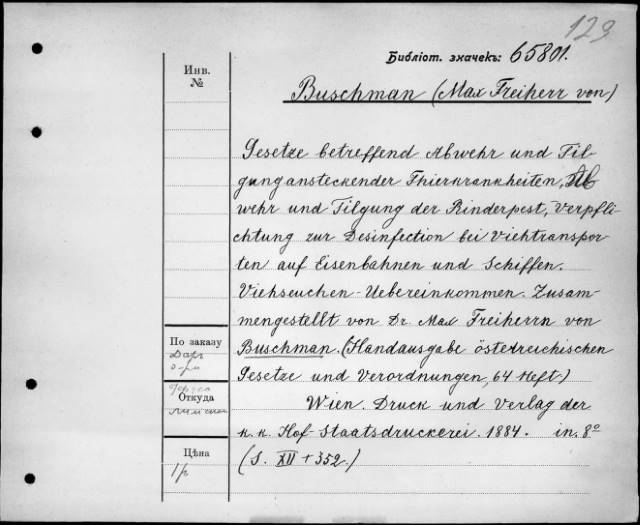 123
Библіот. значекъ: 65801.
Инв.
№
Buschman (Max Freiherr von)
Gesetze betreffend Abwehr und Til-
gung ansteckender Thierkrankheiten, Ab
wehr und Tilgung der Rinderpest, Verpfli-
chtung zur Desinfection bei Viehtranspor-
ten auf Eisenbahnen und Schiffen.
Viehseuchen-Uebereinkommen. Zusam-
mengestellt von Dr. Max Freiherrn von
Buschman. (Handausgabe österreichischen
Gesetze und Verordnungen, 64 Heft)
Wien. Druck und Verlag der
k. k. Hof-Staatsdruckerei. 1884. in. 8°
(S. XII + 352.)
По заказу
Даръ
Откуда
Цѣна
1р